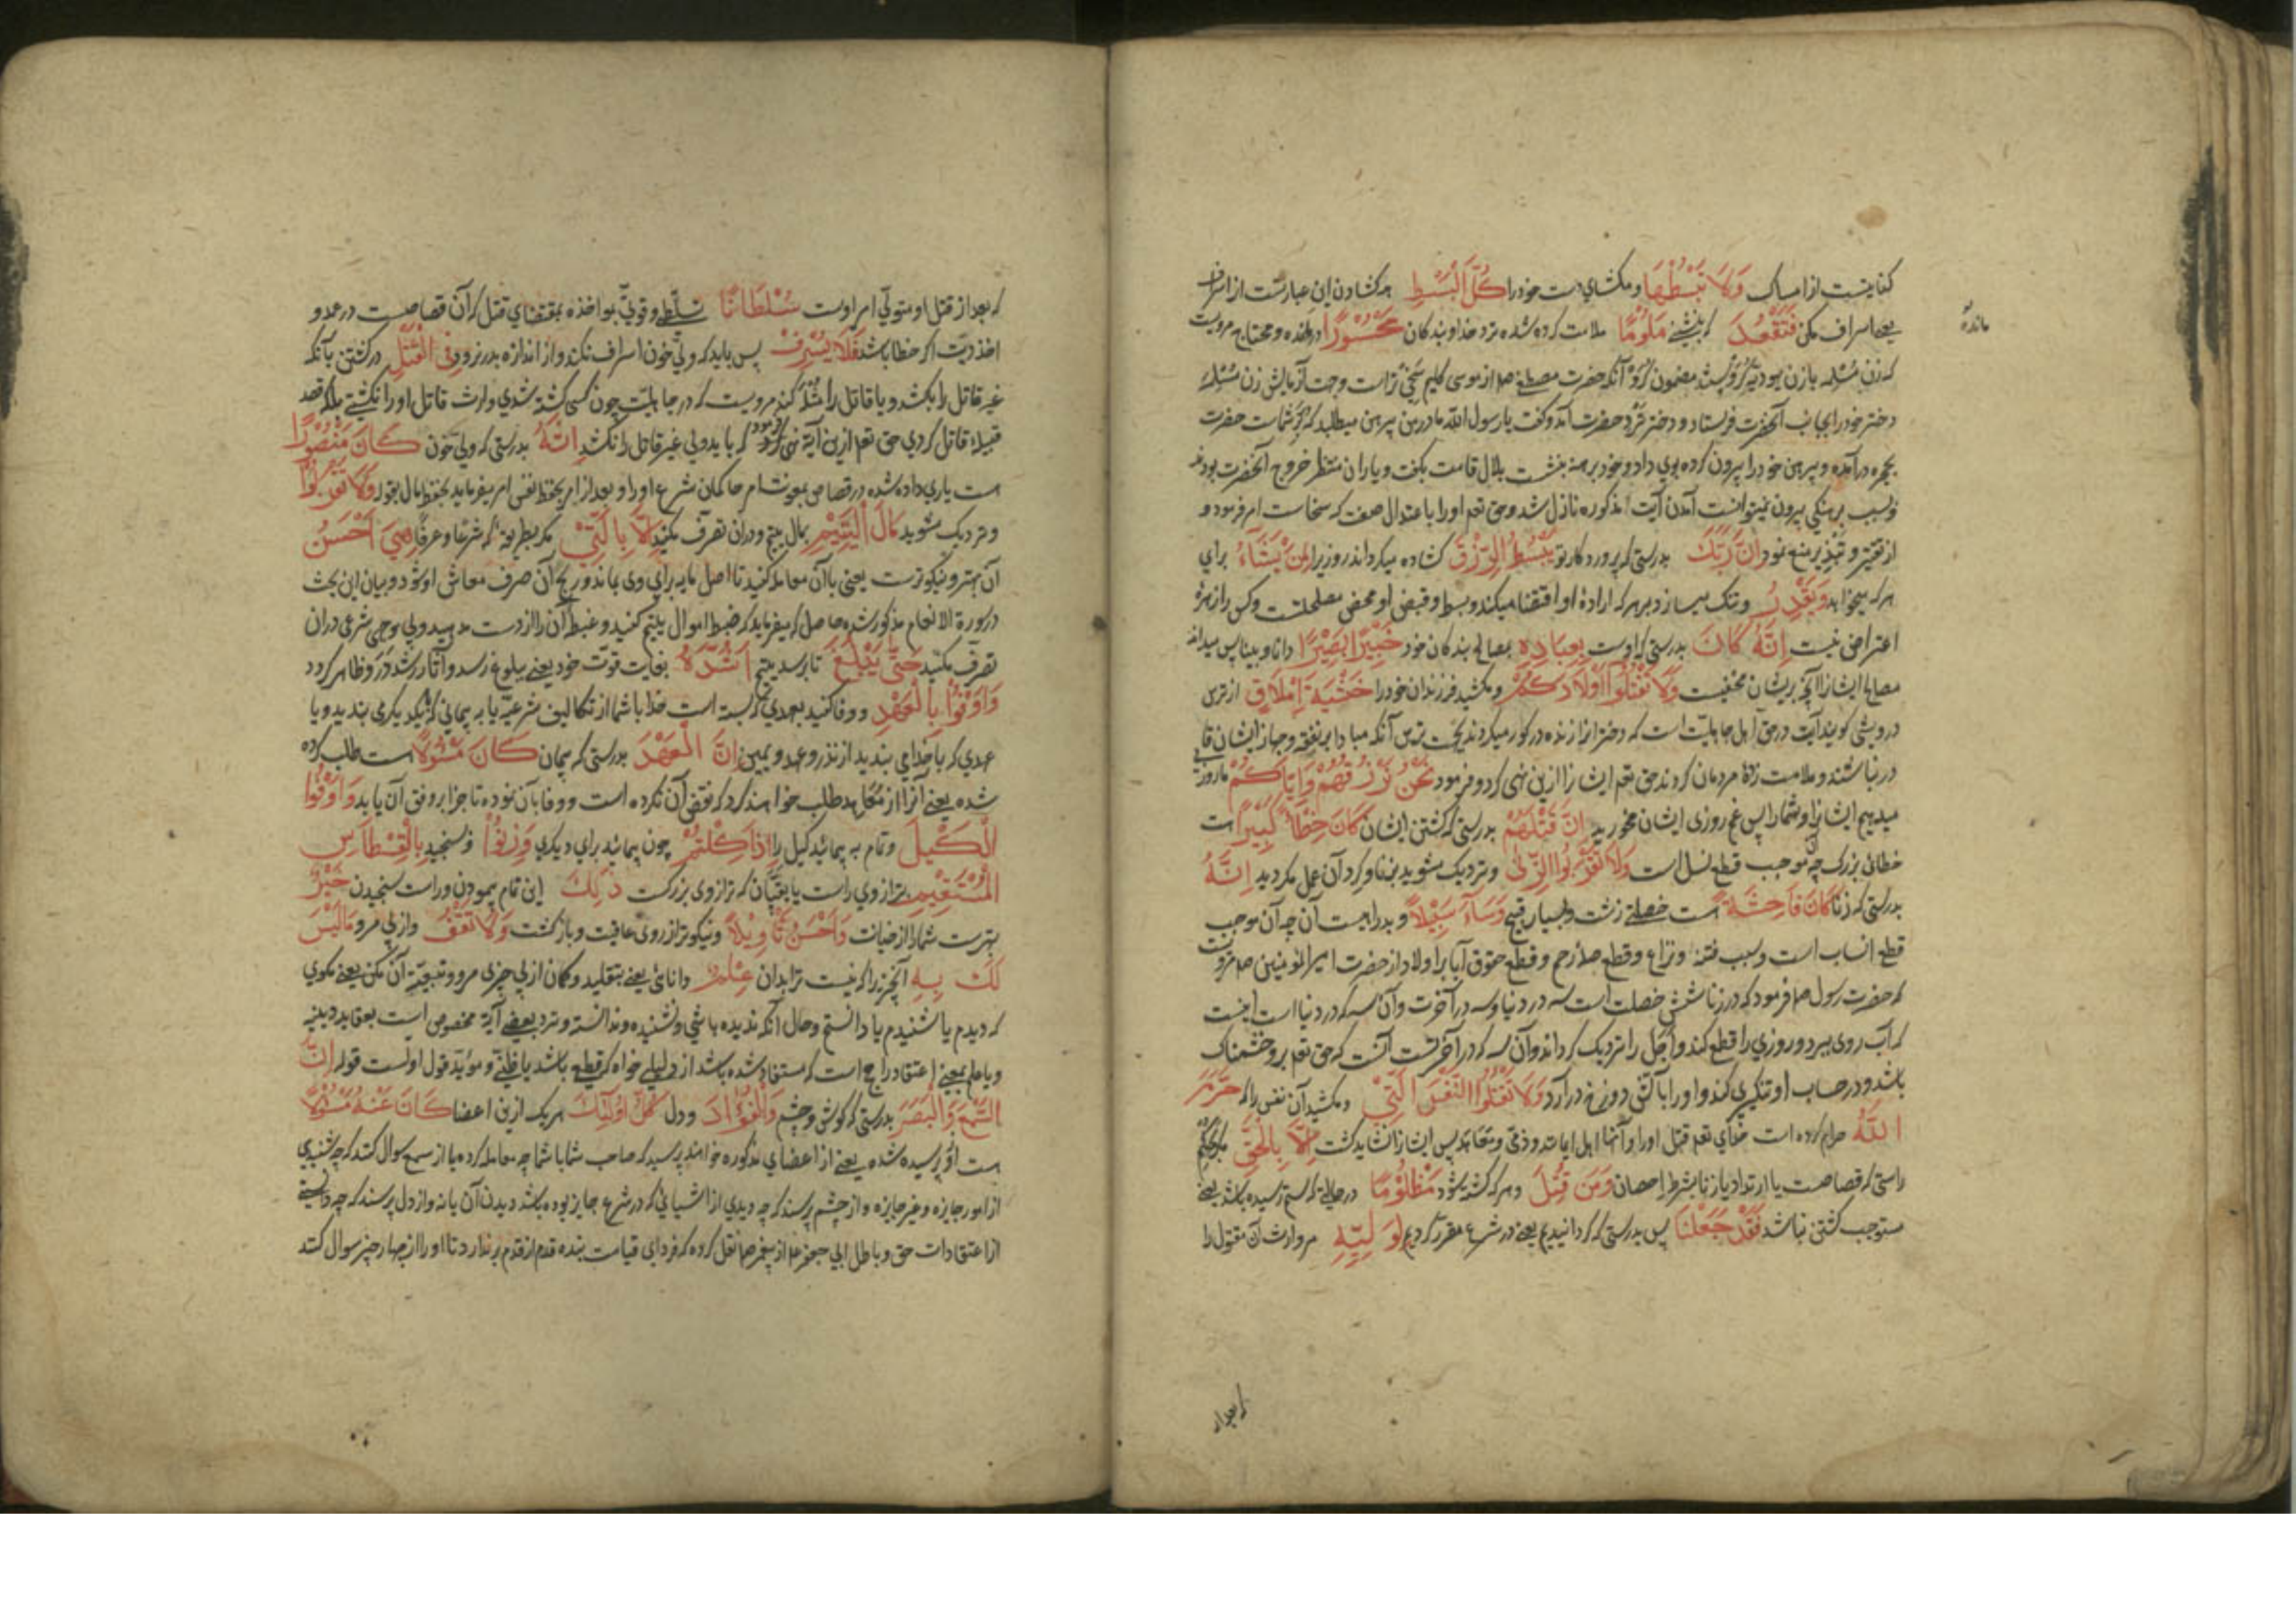 کنایتست از امساک وَلَا تَبْسُطْهَا و مکشای دست خود را کُلَّ الْبَسْطِ همه کشادن این عبارتست از اسراف
یعنی اسراف مکن فَتَقْعُدَ که بنشینی مَلُومًا ملامت کرده شده نزد خدا و بندگان مَحْسُورًا درمانده و محتاج مرویست
مانده
که زن مسلمه با زن یهودیه گرو بست مضمون گرو آنکه حضرت مصطفی صلم از موسی کلیم سخی‌تر است و جهت آزمایش زن مسلمه
دختر خود را بجانب آنحضرت فرستاد و دختر نزد حضرت آمد و گفت یا رسول الله مادر من پیرهن میطلبد که حضرت
بحجره درآمده و پیرهن خود را بیرون کرده بوی داد و خود برهنه بنشست بلال قامت بگفت و یاران منتظر خروج آنحضرت بودند
و بسبب برهنگی بیرون نمیتوانست آمدن آیت مذکوره نازل شد و حق تعم او را باعتدال صفت که سخاست امر فرمود و
از تقتیر و تبذیر منع نمود اِنَّ رَبَّکَ بدرستی که پروردگار تو یَبْسُطُ الرِّزْقَ کشاده میگرداند روزی را لِمَنْ یَشَآءُ برای
هر که میخواهد وَیَقْدِرُ و تنک میسازد بر هر که اراده او اقتضا میکند و بسط و قبض او محض مصلحتست و کس را زهره
اعتراض نیست اِنَّهُ کَانَ بدرستی که اوست بِعِبَادِهٖ بمصالح بندگان خود خَبِیْرًا بَصِیْرًا دانا و بینا پس میداند
مصالح ایشان را آنچه بریشان مخفیست وَلَا تَقْتُلُوْا اَوْلَادَکُمْ و مکشید فرزندان خود را خَشْیَةَ اِمْلَاقٍ از ترس
درویشی گویند آیت در حق اهل جاهلیت است که دختران را زنده در گور میکردند بجهت ترس آنکه مبادا بر نفقه و جهاز ایشان قادر
نباشند و ملامت مردمان کردند حق تعم ایشان را ازین نهی کرد و فرمود نَحْنُ نَرْزُقُهُمْ وَاِیَّاکُمْ ما روزی
میدهیم ایشان را و شما را پس غم روزی ایشان مخورید اِنَّ قَتْلَهُمْ بدرستی که کشتن ایشان کَانَ خِطْاً کَبِیْرًا است
خطائی بزرک چه موجب قطع نسل است وَلَا تَقْرَبُوا الزِّنٰی و نزدیک مشوید بزنا و کرد آن عمل مکردید اِنَّهُ
بدرستی که زنا کَانَ فَاحِشَةً است خصلتی زشت و بسیار قبیح وَسَآءَ سَبِیْلًا و بد راهیست آن چه آن موجب
قطع انساب است و سبب فتنه و نزاع و قطع صله رحم و قطع حقوق آبا بر اولاد از حضرت امیر المؤمنین صلم مرویست
که حضرت رسول صلم فرمود که در زنا شش خصلت است سه در دنیا و سه در آخرت و آن سه که در دنیا است اینست
که آب روی ببرد و روزی را قطع کند و اجل را نزدیک گرداند و آن سه که در آخرتست آنست که حق تعم برو خشمناک
باشد و در حساب او تنگیری کند و او را بآتش دوزخ درآرد وَلَا تَقْتُلُوا النَّفْسَ الَّتِیْ و مکشید آن نفس را که حَرَّمَ
اللّٰهُ حرام کرده است خدای تعم قتل او را و آنها اهل ایمانند و ذمی و معاهد پس ایشان را نشاید کشت اِلَّا بِالْحَقِّ مکر بحکم
راستی که قصاصست یا ارتداد یا زنا بشرط احصان وَمَنْ قُتِلَ و هر که کشته شود مَظْلُوْمًا در حالتی که ستم رسیده باشد یعنی
مستوجب کشتن نباشد فَقَدْ جَعَلْنَا پس بدرستی که کردانیدیم یعنی در شرع مقرر کردیم لِوَلِیِّهٖ مر وارث آن مقتول را
که بعد از
که بعد از قتل او متولی امر اوست سُلْطَانًا تسلط و قوتی بمواخذه بمقتضای قتل که آن قصاصست در عمد و
اخذ دیت اکر خطا باشد فَلَا یُسْرِفْ پس باید که ولی خون اسراف نکند و از اندازه بدر نرود فِی الْقَتْلِ در کشتن بآنکه
غیر قاتل را بکشد و یا قاتل را مثله کند مرویست که در جاهلیت چون کسی کشته شدی وارث قاتل او را نکشتی بلکه قصد
قبیله قاتل کردی حق تعم ازین آیة نهی فرمود که باید ولی غیر قاتل را نکشد اِنَّهُ بدرستی که ولی خون کَانَ مَنْصُوْرًا
هست یاری داده شده در قصاص بمعونت امام حاکمان شرع او را و بعد از امر بحفظ نفس امر میفرماید بحفظ مال بقوله وَلَا تَقْرَبُوْا
و نزدیک مشوید مَالَ الْیَتِیْمِ بمال یتیم و دران تصرف مکنید اِلَّا بِالَّتِیْ مکر بطریقه که شرعا و عرفا هِیَ اَحْسَنُ
آن بهتر و نیکوترست یعنی باآن معامله کنید تا اصل مایه برای وی بماند و ربح آن صرف معاش او شود و بیان این بحث
در سورة الانعام مذکور شده حاصل که میفرماید که ضبط اموال یتیم کنید و غبطه آن را از دست مدهید ولی بوجهی شرعی دران
تصرف مکنید حَتّٰی یَبْلُغَ تا برسد یتیم اَشُدَّهُ بغایت قوت خود یعنی ببلوغ رسد و آثار رشد درو ظاهر کردد
وَاَوْفُوْا بِالْعَهْدِ و وفا کنید بعهدی که بسته است خدا با شما از تکالیف شرعیه یا به پیمانی که بیکدیکر می بندید و یا
عهدی که باخدا می بندید از نذر و عهد و یمین اِنَّ الْعَهْدَ بدرستی که پیمان کَانَ مَسْئُوْلًا هست طلب کرده
شده یعنی آنرا از معاهد طلب خواهند کرد که نقض آن نکرده است و وفا بآن نموده تا جزا بر وفق آن یابد وَاَوْفُوا
الْکَیْلَ و تمام به پیمائید کیل را اِذَا کِلْتُمْ چون پیمائید برای دیکری وَزِنُوْا و سنجید بِالْقِسْطَاسِ
الْمُسْتَقِیْمِ بترازوی راست یا بقپان که ترازوی بزرکست ذٰلِکَ این تمام پیمودن و راست سنجیدن خَیْرٌ
بهترست شما را از خیانت وَاَحْسَنُ تَاْوِیْلًا و نیکوتر از روی عاقبت و بازکشت وَلَا تَقْفُ و از پی مرو مَا لَیْسَ
لَکَ بِهٖ آنچیز را که نیست ترا بدان عِلْمٌ دانائی یعنی بتقلید و کمان از پی چیزی مرو و تبعیت آن مکن یعنی مکوی
که دیدم یا شنیدم یا دانستم و حال آنکه ندیده باشی و نشنیده و ندانسته و نزد بعضی آیة مخصوص است بعقاید دینیه
و یا علم بمعنی اعتقاد راجح است که مستفاد شده باشد از دلیلی خواه که قطعی باشد یا ظنی و مؤید قول اولست قوله اِنَّ
السَّمْعَ وَالْبَصَرَ بدرستی که کوش و چشم وَالْفُؤَادَ و دل کُلُّ اُولٰٓئِکَ هر یک ازین اعضا کَانَ عَنْهُ مَسْئُوْلًا
هست ازو پرسیده شده یعنی از اعضای مذکوره خواهند پرسید که صاحب شما با شما چه معامله کرده یا از سمع سوال کنند که چه شنیدی
از امور جایزه و غیر جایزه و از چشم پرسند که چه دیدی از اشیائی که در شرع جایز بوده باشد دیدن آن یا نه و از دل پرسند که چه دانستی
از اعتقادات حق و باطل ابی جعفر عم از پیغمبر صلم نقل کرده که فردای قیامت بنده قدم از قدم برندارد تا او را از چهار چیز سوال کنند